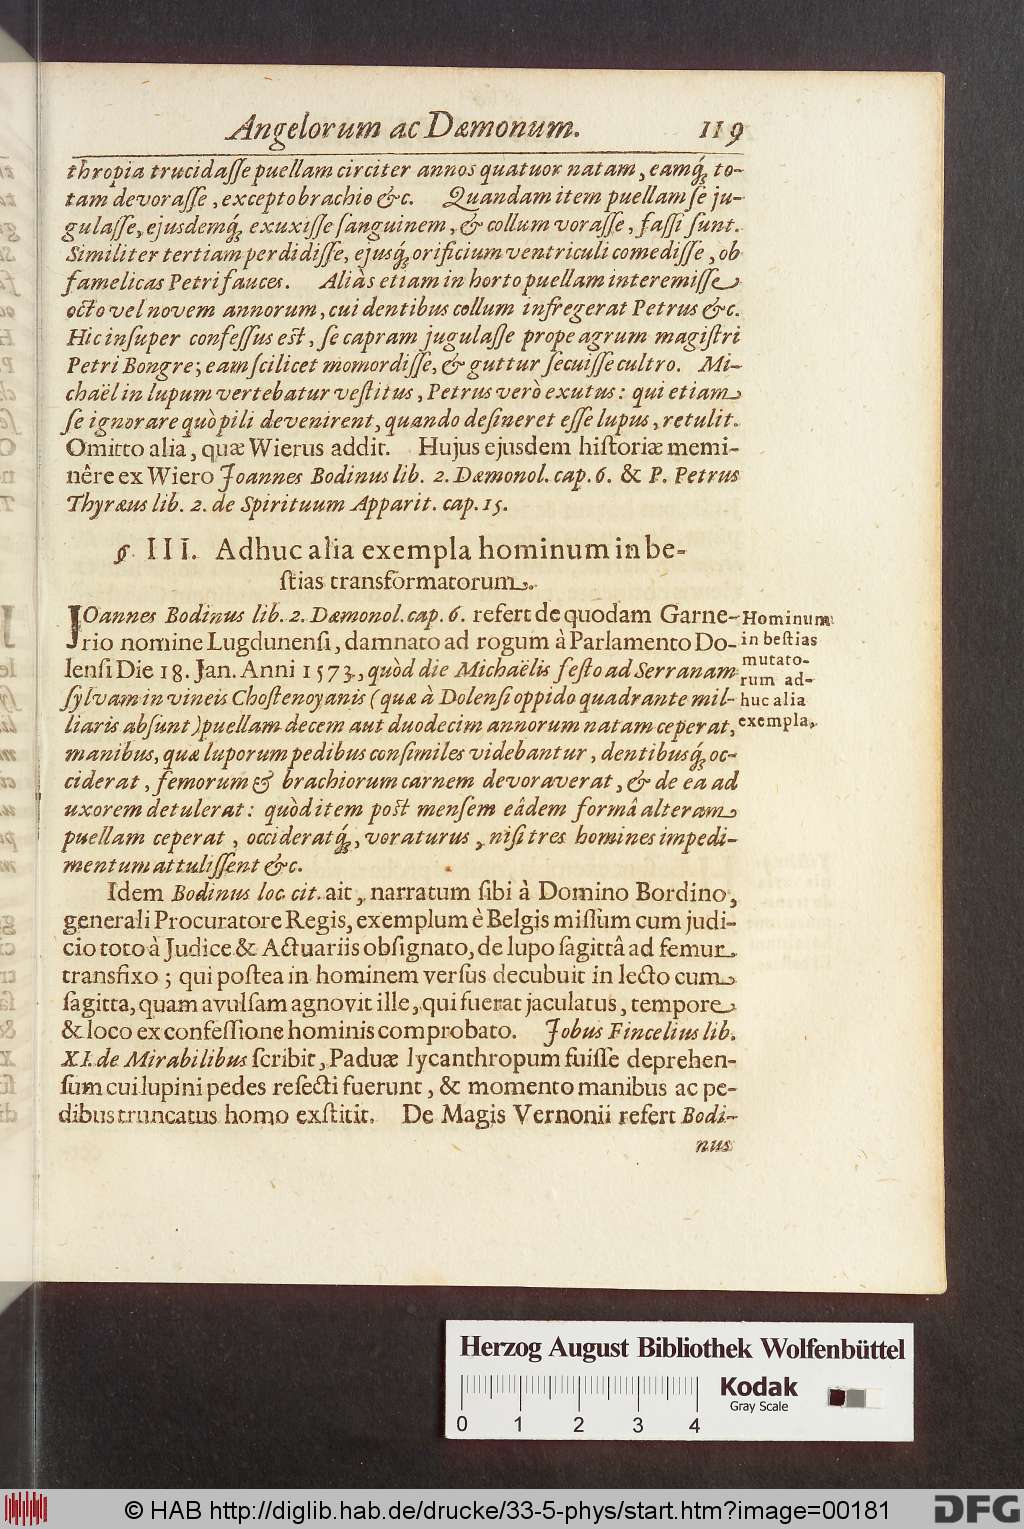 Angelorum ac Dæmonum. 119
thropia trucidaſſe puellam circiter annos quatuor natam, eamq́; to-
tam devoraſſe, excepto brachio &c. Quandam item puellam ſe ju-
gulaſſe, ejusdemq́; exuxiſſe ſanguinem, & collum voraſſe, faſſi ſunt.
Similiter tertiam perdidiſſe, ejusq́; orificium ventriculi comediſſe, ob
famelicas Petri fauces. Aliàs etiam in horto puellam interemiſſe
octo vel novem annorum, cui dentibus collum infregerat Petrus &c.
Hic inſuper confeſſus eſt, ſe capram jugulaſſe prope agrum magiſtri
Petri Bongre; eam ſcilicet momordiſſe, & guttur ſecuiſſe cultro. Mi-
chaël in lupum vertebatur veſtitus, Petrus verò exutus: qui etiam
ſe ignorare quò pili devenirent, quando deſineret eſſe lupus, retulit.
Omitto alia, quæ Wierus addit. Hujus ejusdem hiſtoriæ memi-
nêre ex Wiero Joannes Bodinus lib. 2. Dæmonol. cap. 6. & P. Petrus
Thyræus lib. 2. de Spirituum Apparit. cap. 15.
§. III. Adhuc alia exempla hominum in be-
ſtias transformatorum.
JOannes Bodinus lib. 2. Dæmonol. cap. 6. refert de quodam Garne-
rio nomine Lugdunenſi, damnato ad rogum à Parlamento Do-
lenſi Die 18. Jan. Anni 1573., quòd die Michaëlis feſto ad Serranam
ſylvam in vineis Choſtenoyanis (quæ à Dolenſi oppido quadrante mil-
liaris abſunt) puellam decem aut duodecim annorum natam ceperat,
manibus, quæ luporum pedibus conſimiles videbantur, dentibusq́; oc-
ciderat, femorum & brachiorum carnem devoraverat, & de ea ad
uxorem detulerat: quòd item poſt menſem eâdem formâ alteram
puellam ceperat, occideratq́;, voraturus, niſi tres homines impedi-
mentum attuliſſent &c.
Hominum
in beſtias
mutato-
rum ad-
huc alia
exempla.
Idem Bodinus loc. cit. ait, narratum ſibi à Domino Bordino,
generali Procuratore Regis, exemplum è Belgis miſſum cum judi-
cio toto à Judice & Actuariis obſignato, de lupo ſagittâ ad femur
transfixo; qui poſtea in hominem verſus decubuit in lecto cum
ſagitta, quam avulſam agnovit ille, qui fuerat jaculatus, tempore
& loco ex confeſſione hominis comprobato. Jobus Fincelius lib.
XI. de Mirabilibus ſcribit, Paduæ lycanthropum fuiſſe deprehen-
ſum cui lupini pedes reſecti fuerunt, & momento manibus ac pe-
dibus truncatus homo exſtitit. De Magis Vernonii refert Bodi-
nus
Herzog August Bibliothek Wolfenbüttel
0 1 2 3 4
Kodak
Gray Scale
© HAB http://diglib.hab.de/drucke/33-5-phys/start.htm?image=00181
DFG